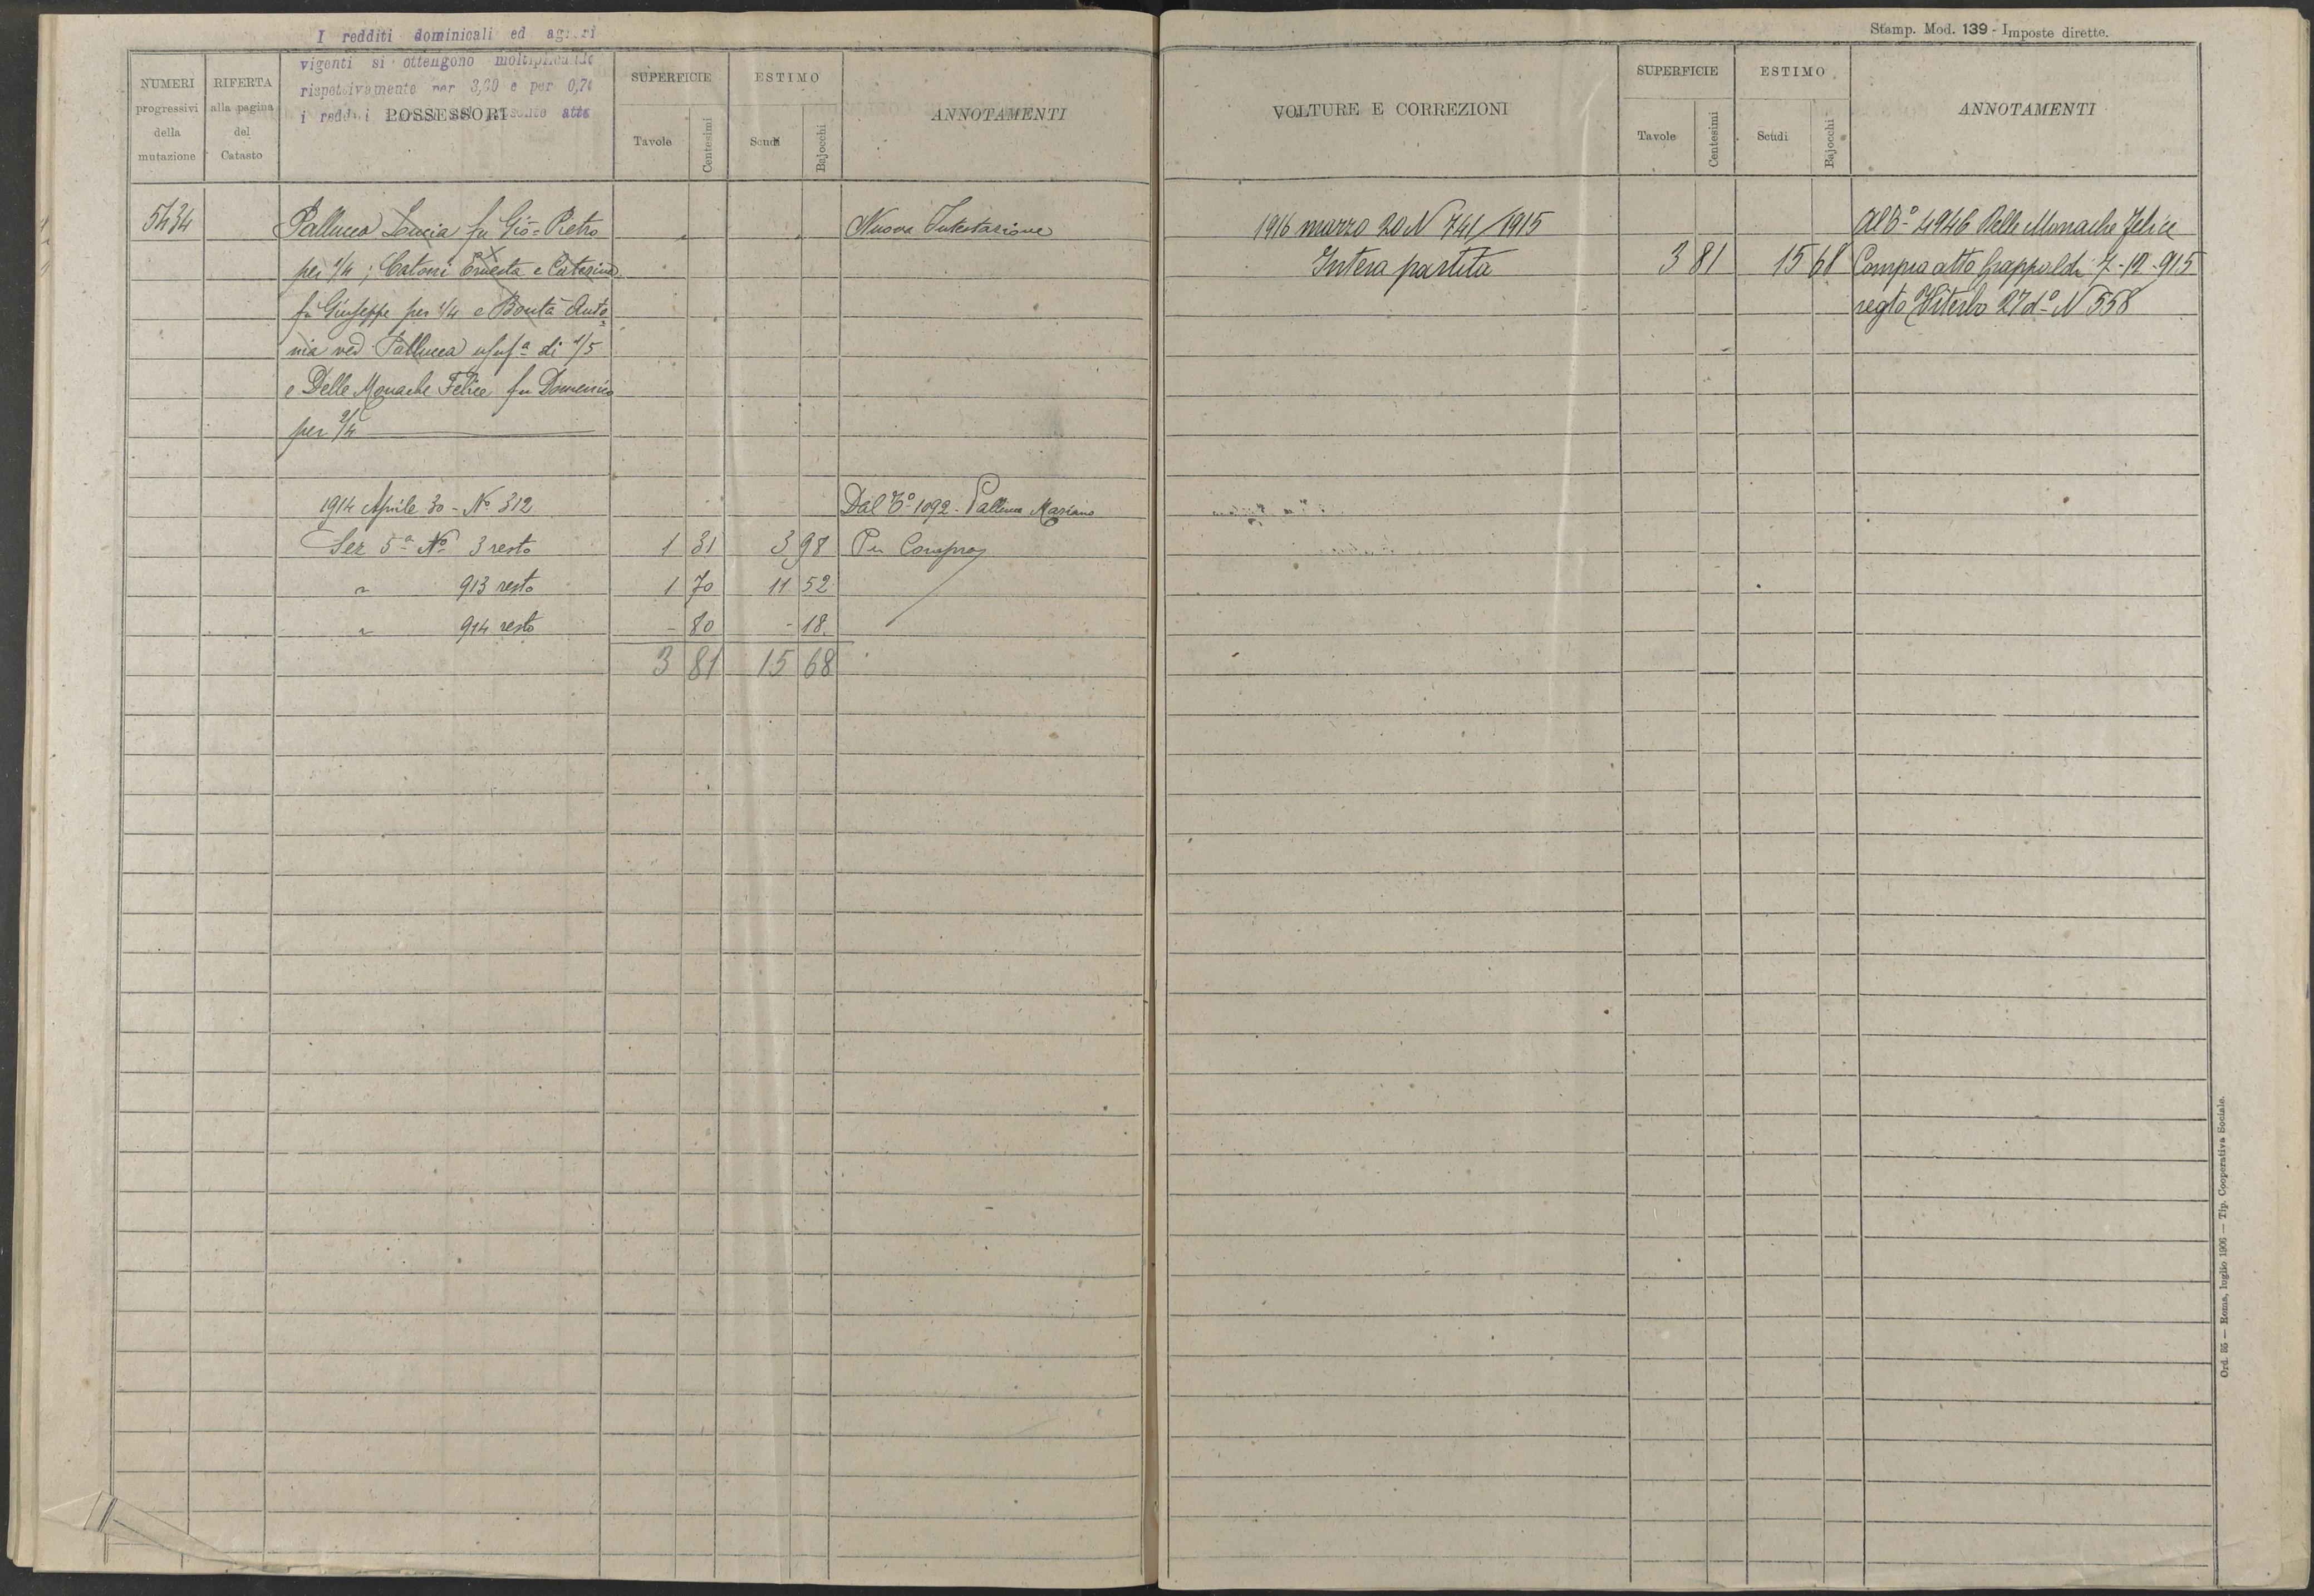 I redditi dominicali ed agrari
vigenti si ottengono moltiplicando
rispettivamente per 3,60 e per 0,70
i redditi presente atto
Stamp. Mod. 139 - Imposte dirette.
NUMERI progressivi della mutazione
RIFERTA alla pagina del Catasto
POSSESSORI
SUPERFICIE
Tavole Centesimi
ESTIMO
Scudi Bajocchi
ANNOTAMENTI
VOLTURE E CORREZIONI
SUPERFICIE
Tavole Centesimi
ESTIMO
Scudi Bajocchi
ANNOTAMENTI
5434 Pallucca Loucia fu Gio = Pietro " " Nuova Intestazione
per 1/4 ; Catoni Ernesta e Caterina
fu Giuseppe per 1/4 e Bontà Anto=
nia ved. Pallucca usufª di 1/5
e Delle Monache Felice fu Domenico
per 2/4
1914 Aprile 30 - Nº 312 Dal Tº 1092 - Pallucca Mariano
Sez 5ª Nº 3 resto 1 31 3 98 Per Compra
" 913 resto 1 70 11 52
" 914 resto - 80 - 18
3 81 15 68
1916 marzo 20 N 741/1915 Al Tº 4946 Delle Monache Felice
Intera partita 3 81 15 68 Compra atto Grappoldi 7-12-915
regto Viterbo 27 dº N 558
Ord. 85 — Roma, luglio 1906 — Tip. Cooperativa Sociale.